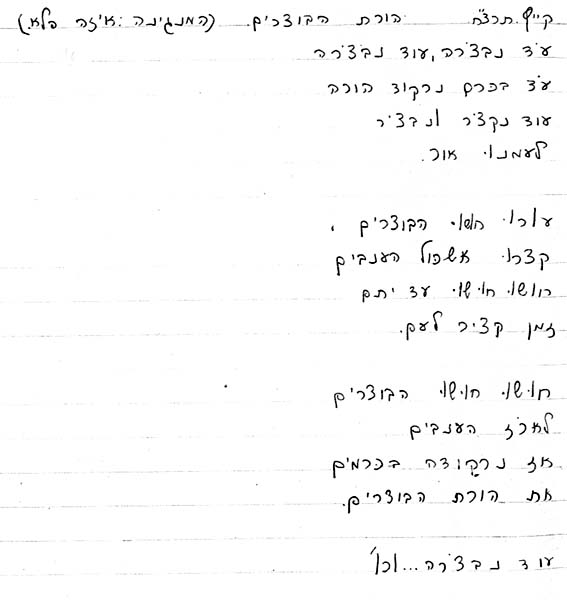 קייץ תרצ"ח הורת הבוצרים. (המנגינה: איזה פלא.)
עוד נבצרה, עוד נבצרה
עוד בכרם נרקוד הורה
עוד נקצר ונבציר
לעמנו אור.
עורו חושו הבוצרים,
קצרו אשכול הענבים
חושו חושו עד יתם
זמן קציר לעם.
חושו חושו הבוצרים
לארוז הענבים
אז נרקודה בכרמים
את הורת הבוצרים.
עוד נבצרה... וכו'